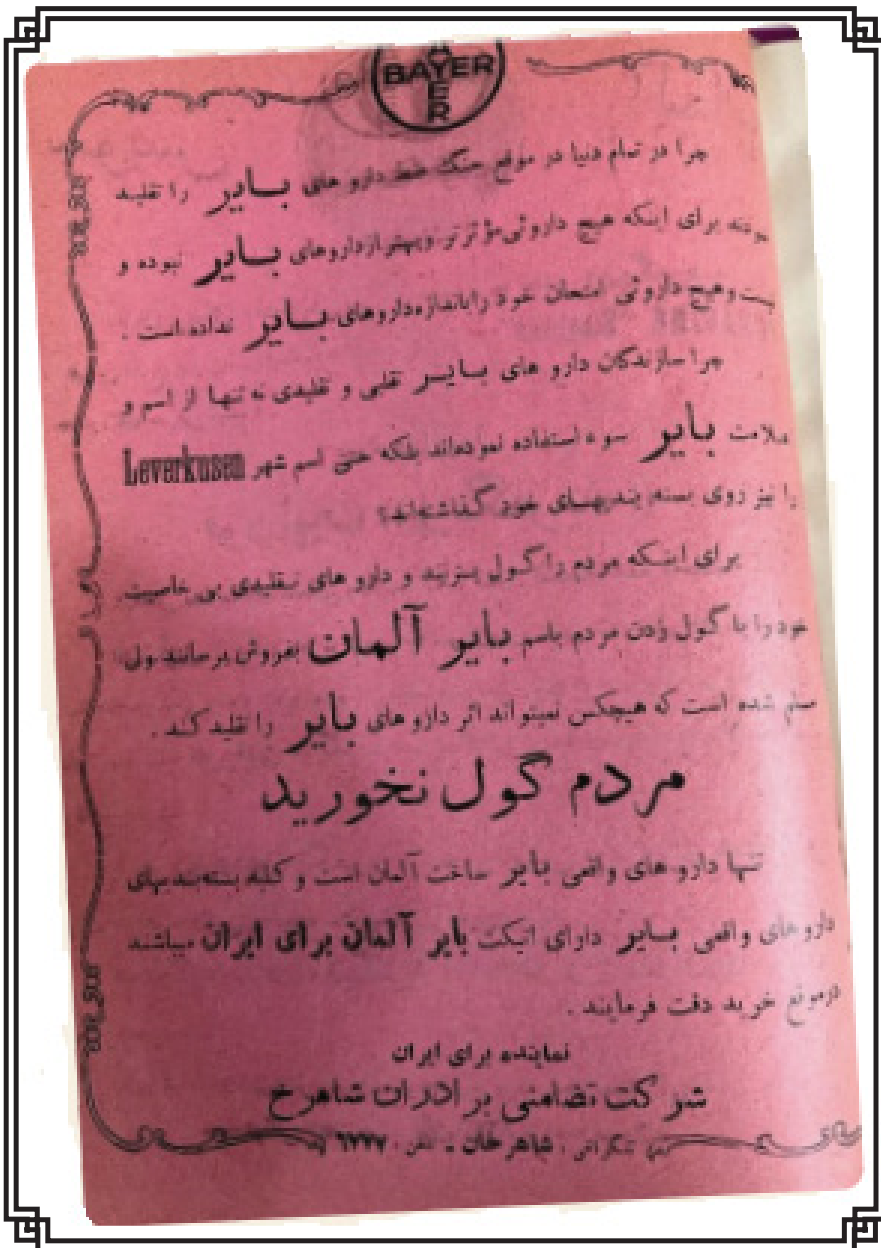 BAYER
BAYER
چرا در تمام دنیا در موقع جنگ فقط دارو های بایر را تقلید
نمودند برای اینکه هیچ داروئی مؤثرتر وبهتر ازداروهای بایر نبوده و
نیست وهیچ داروئی امتحان خود راباندازه‌داروهای بایر نداده است .
چرا سازندگان دارو های بایر تقلبی و تقلیدی نه تنها از اسم و
علامت بایر سوء استفاده نموده‌اند بلکه حتی اسم شهر Leverkusen
را نیز روی بسته بندیهای خود گذاشته‌اند؟
برای اینکه مردم را گول بزنند و دارو های تقلیدی بی خاصیت
خود را با گول زدن مردم باسم بایر آلمان بفروش برسانند ولی
مسلم شده است که هیچکس نمیتواند اثر دارو های بایر را تقلید کند .
مردم گول نخورید
تنها دارو های واقعی بایر ساخت آلمان است و کلیه بسته‌بندیهای
دارو های واقعی بایر دارای اتیکت بایر آلمان برای ایران میباشند
درموقع خرید دقت فرمایند .
نماینده برای ایران
شرکت تضامنی برادران شاهرخ
تلگرافی : شاهرخان - تلفن